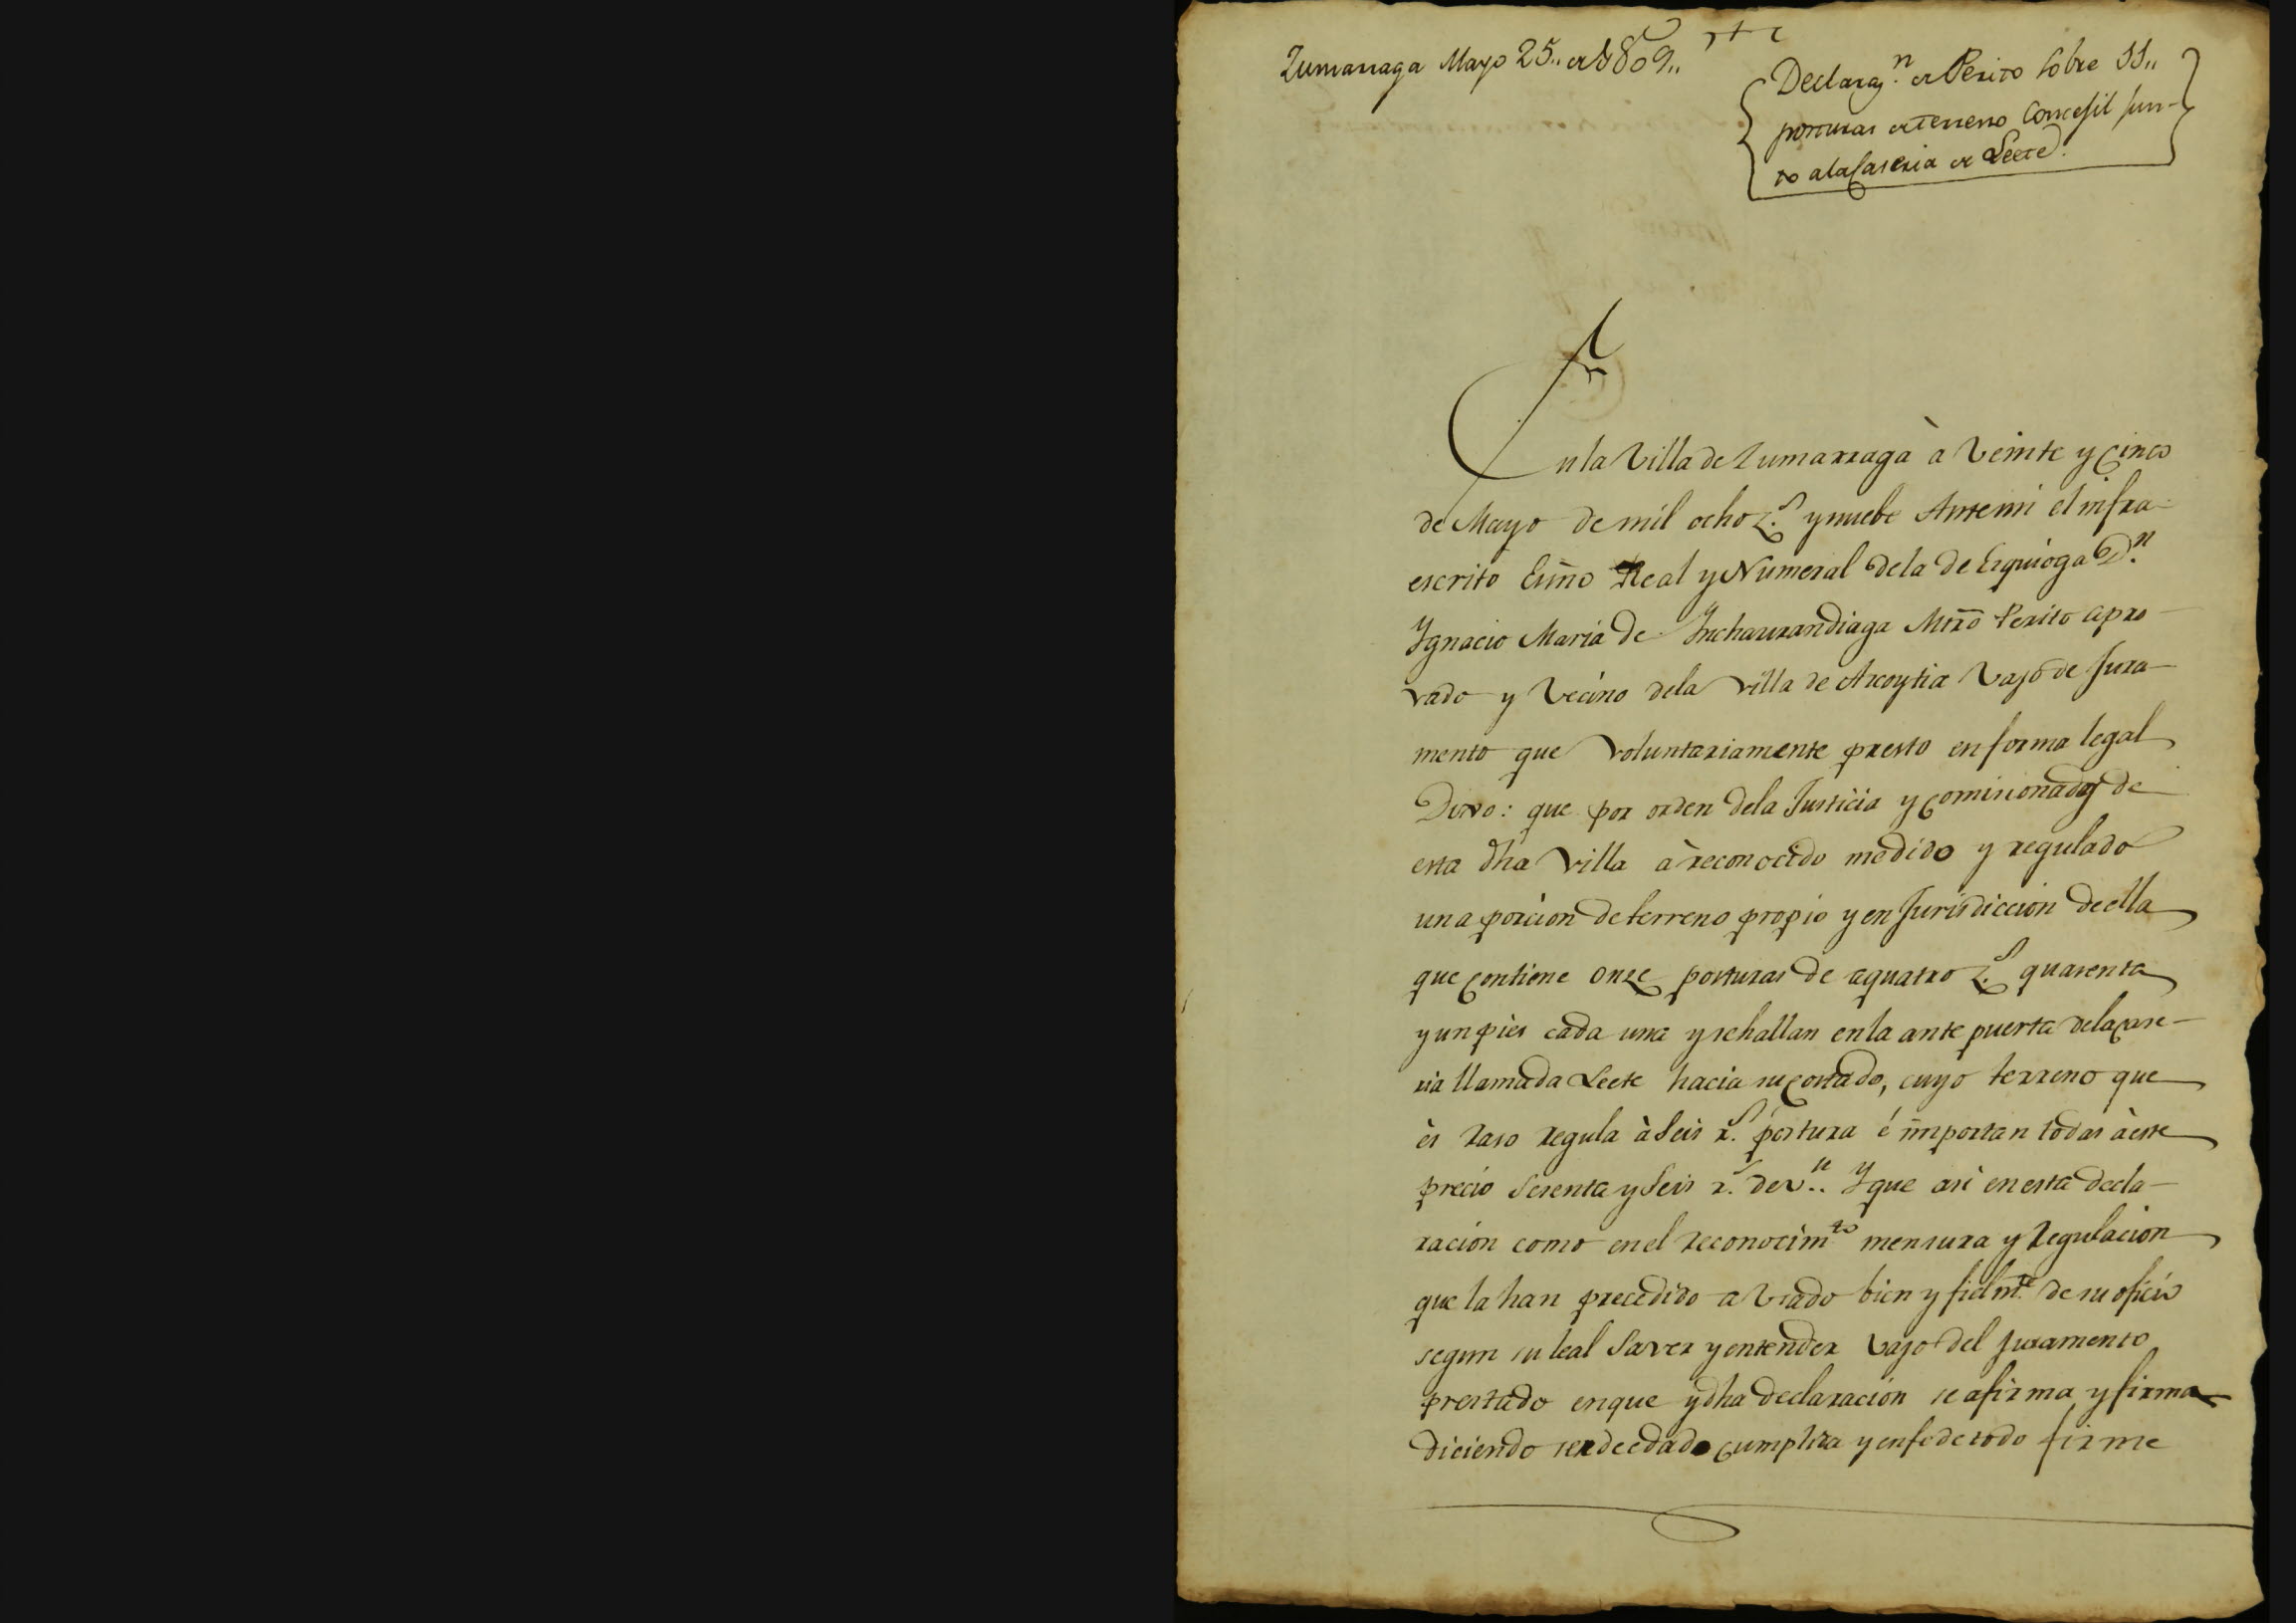 Zumarraga Mayo 25.. de 1809..
Declaraz.n de Perito sobre 11..
porturas de terreno Concejil jun-
to a la Caseria de Leete.
En la Villa de Zumarraga à Veinte y Cinco
de Mayo de mil ocho z.s y nuebe Ante mi el infra-
escrito Essno Real y Numeral de la de Ezquioga D.n
Ygnacio Maria de Ynchaurandiaga Mtro Perito apro-
vado y Vecino de la villa de Azcoytia Vajo de Jura-
mento que voluntariamente presto en forma legal
Dixo: que por orden de la Justicia y Comisionados de
esta dha Villa à reconocido medido y regulado
una porcion de terreno propio y en Jurisdiccion de ella
que Contiene onze posturas de a quatro z.s quarenta
y un pies cada una y se hallan en la ante puerta de la Case-
ria llamada Leete hacia su Costado, cuyo terreno que
ès raso regula à Seis r.s postura é importan todas à este
precio Sesenta y Seis r.s de v.n. Y que asi en esta decla-
racion como en el reconocim.to mensura y Regulacion
que la han precedido a Usado bien y fielm.te de su oficio
segun su leal Saver y entender Vajo del Juramento
prestado en que y dha declaracion se afirma y firma
diciendo ser de edad Cumplida y en fe de todo firme